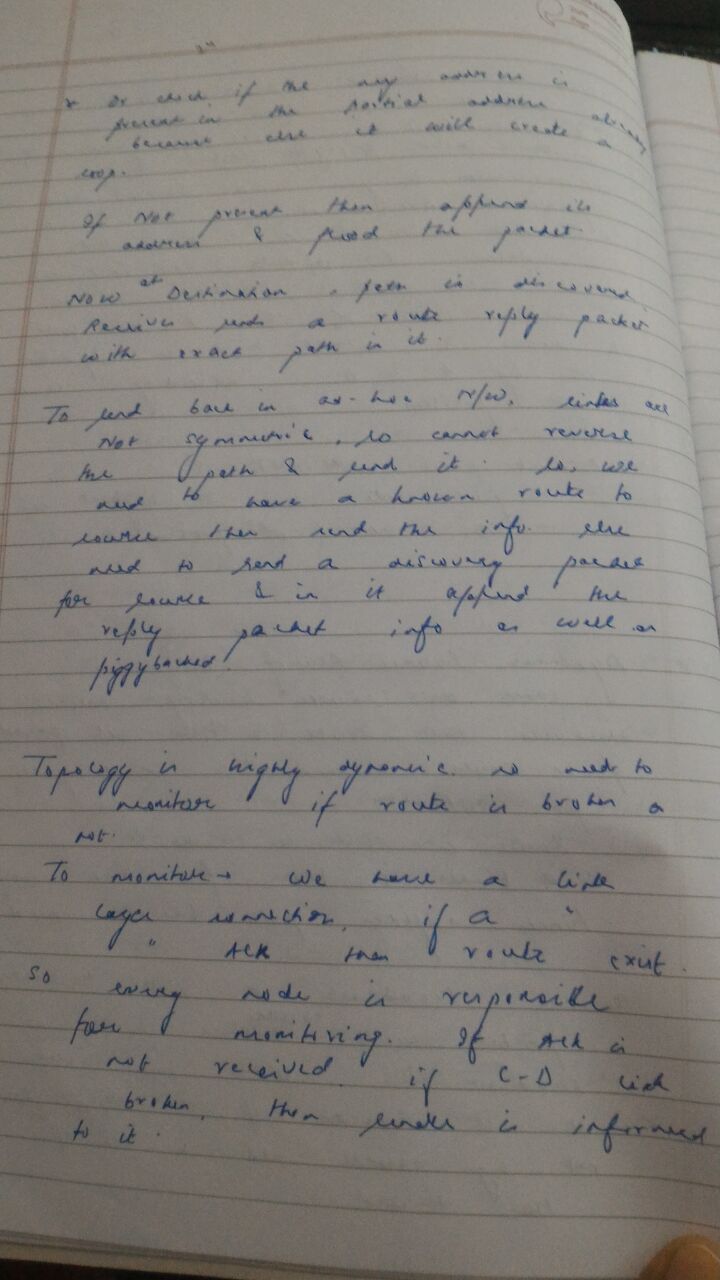 Or check if the any address is
present in the partial address already
because else it will create a
loop.
If Not present then append its
address & flood the packet
Now at Destination, path is discovered
Receiver sends a route reply packet
with exact path in it.
To send back in ad-hoc N/W, links are
Not symmetric, so cannot reverse
the path & send it. So, we
need to have a known route to
source then send the info. else
need to send a discovery packet
for source & in it append the
reply packet info as well as
piggybacked.
Topology is highly dynamic so need to
monitor if route is broken or
not.
To monitor → We have a link
layer connection, if a "
" ACK then route exist.
So every node is responsible
for monitiring. If ACK is
not received. if C-D link
broken, then sender is informed
to it.